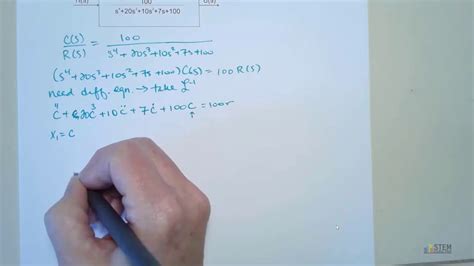 R(s) 100 C(s)
s⁴+20s³+10s²+7s+100
C(s)/R(s) = 100/(s⁴+20s³+10s²+7s+100)
(s⁴+20s³+10s²+7s+100)C(s) = 100R(s)
need diff. eqn. → take ℒ⁻¹
c⁽⁴⁾ + 20c⁽³⁾ + 10c̈ + 7ċ + 100c = 100r
x₁ = c
STEM